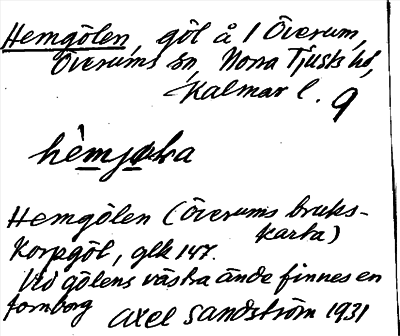 Hemgölen, göl å 1 Överum,
Överums sn, Norra Tjusts hd,
Kalmar l. 9
Hemgölen (Överums bruks-
karta)
Korpgöl, glk 147.
Vid gölens västra ände finnes en
fornborg Axel Sandström 1931